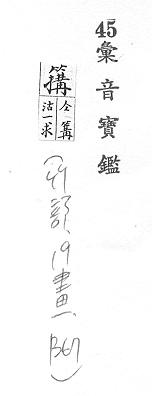 45彙音寶鑑
仝篝
沽一求
(竹部, 19畫,